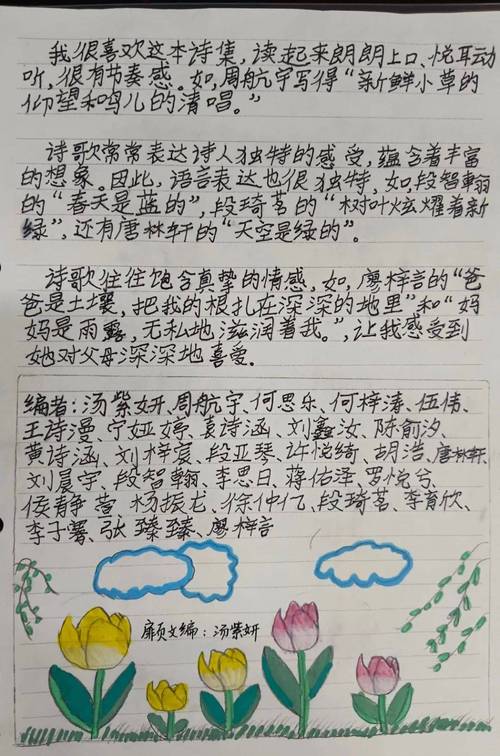 我很喜欢这本诗集，读起来朗朗上口、悦耳动
听，很有节奏感。如，周航宇写得“新鲜小草的
仰望和鸣儿的清唱。”
诗歌常常表达诗人独特的感受，蕴含着丰富
的想象。因此，语言表达也很独特，如，段智翰
的“春天是蓝的”，段琦茗的“树叶炫耀着新
绿”，还有唐林轩的“天空是绿的”。
诗歌往往饱含真挚的情感，如，廖梓言的“爸
爸是土壤，把我的根扎在深深的地里”和“妈
妈是雨露，无私地滋润着我。”，让我感受到
她对父母深深地喜爱。
编者：汤紫妍、周航宇、何思乐、何梓涛、伍伟、
王诗漫、宁娅婷、袁诗涵、刘鑫汝、陈俞汐、
黄诗涵、刘梓宸、段亚琴、许悦绮、胡浩、唐林轩、
刘晨宇、段智翰、李思日、蒋佑泽、罗悦兮、
侯静萱、杨振龙、徐仲亿、段琦茗、李育欣、
李子署、张臻臻、廖梓言
扉页文编：汤紫妍